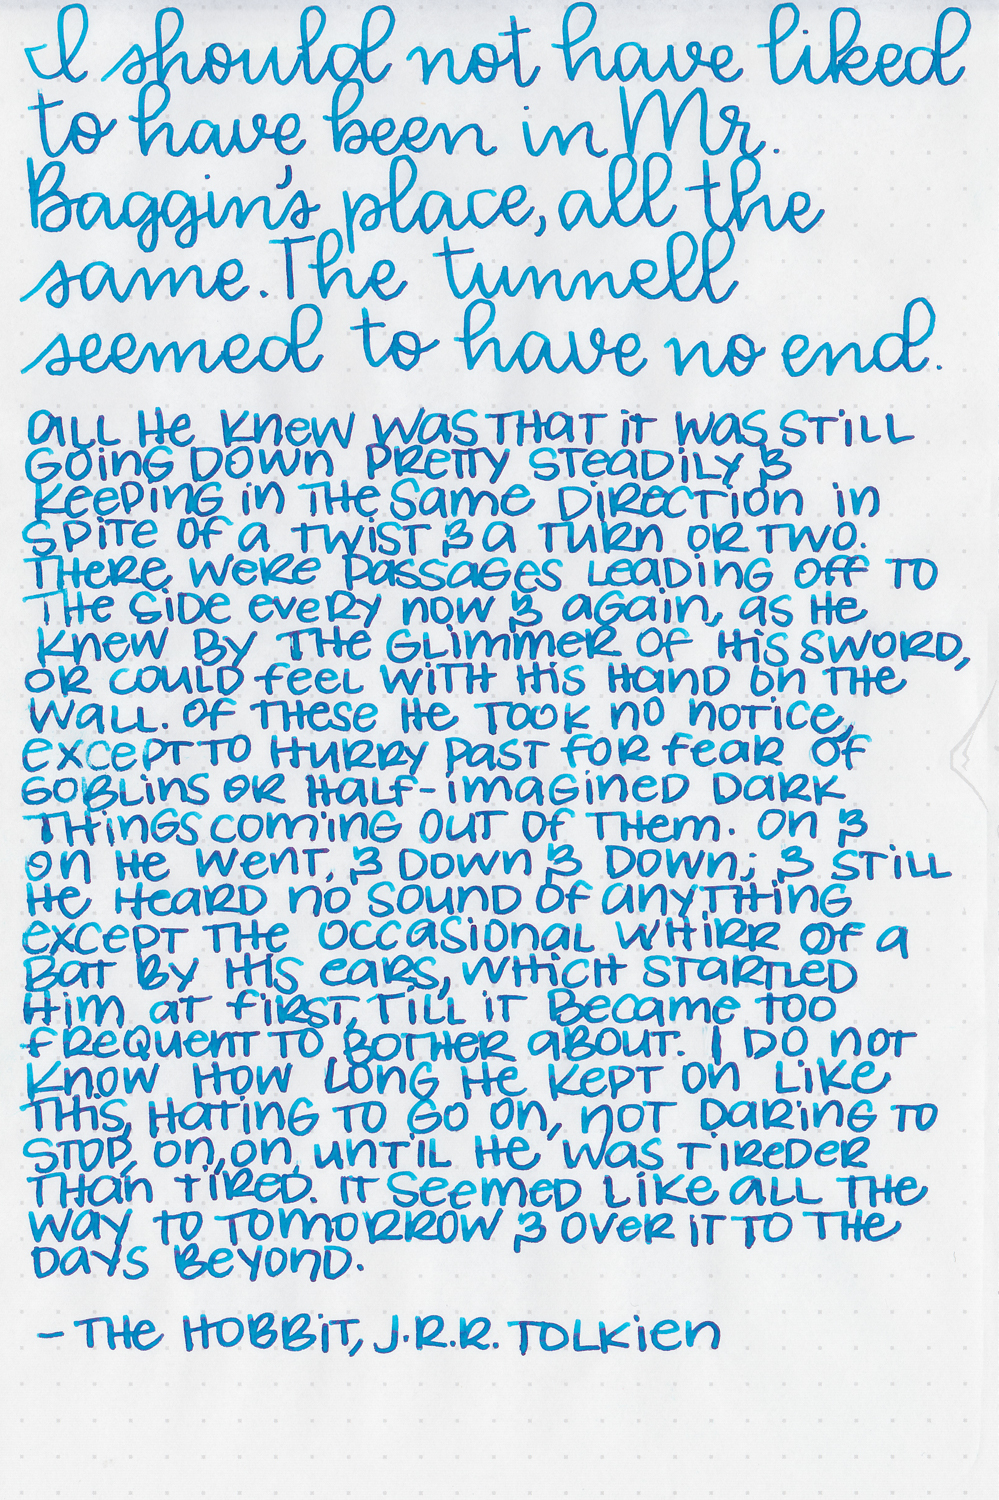 I should not have liked
to have been in Mr.
Baggin's place, all the
same. The tunnell
seemed to have no end.
ALL HE KNEW WAS THAT IT WAS STILL
GOING DOWN PRETTY STEADILY &
KEEPING IN THE SAME DIRECTION IN
SPITE OF A TWIST & A TURN OR TWO.
THERE WERE PASSAGES LEADING OFF TO
THE SIDE EVERY NOW & AGAIN, AS HE
KNEW BY THE GLIMMER OF HIS SWORD,
OR COULD FEEL WITH HIS HAND ON THE
WALL. OF THESE HE TOOK NO NOTICE,
EXCEPT TO HURRY PAST FOR FEAR OF
GOBLINS OR HALF-IMAGINED DARK
THINGS COMING OUT OF THEM. ON &
ON HE WENT, & DOWN & DOWN; & STILL
HE HEARD NO SOUND OF ANYTHING
EXCEPT THE OCCASIONAL WHIRR OF A
BAT BY HIS EARS, WHICH STARTLED
HIM AT FIRST, TILL IT BECAME TOO
FREQUENT TO BOTHER ABOUT. I DO NOT
KNOW HOW LONG HE KEPT ON LIKE
THIS, HATING TO GO ON, NOT DARING TO
STOP, ON, ON, UNTIL HE WAS TIREDER
THAN TIRED. IT SEEMED LIKE ALL THE
WAY TO TOMORROW & OVER IT TO THE
DAYS BEYOND.
- THE HOBBIT, J.R.R. TOLKIEN